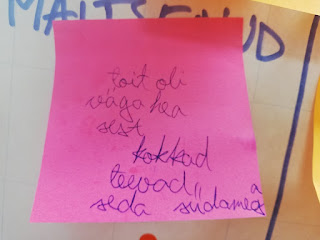 MAITSENUD
toit oli
väga hea
sest
kokkad
teevad
seda südamega